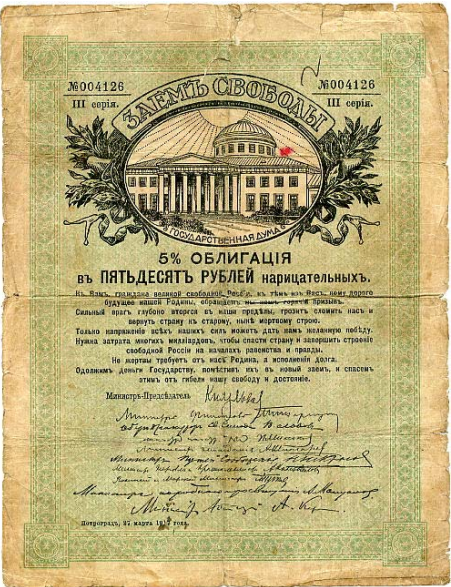 №004126 №004126
III серія. III серія.
ЗАЕМЪ СВОБОДЫ
ГОСУДАРСТВЕННАЯ ДУМА
5% ОБЛИГАЦІЯ
въ ПЯТЬДЕСЯТЪ РУБЛЕЙ нарицательныхъ.
Къ Вамъ, граждане великой свободной Россіи, къ тѣмъ изъ Васъ, кому дорого
будущее нашей Родины, обращаемъ мы нашъ горячій призывъ.
Сильный врагъ глубоко вторгся въ наши предѣлы, грозитъ сломить насъ и
вернуть страну къ старому, нынѣ мертвому строю.
Только напряженіе всѣхъ нашихъ силъ можетъ дать намъ желанную побѣду.
Нужна затрата многихъ милліардовъ, чтобы спасти страну и завершить строеніе
свободной Россіи на началахъ равенства и правды.
Не жертвы требуетъ отъ насъ Родина, а исполненія долга.
Одолжимъ деньги Государству, помѣстивъ ихъ въ новый заемъ, и спасемъ
этимъ отъ гибели нашу свободу и достояніе.
Министръ-Предсѣдатель
Петроградъ, 27 марта 1917 года.